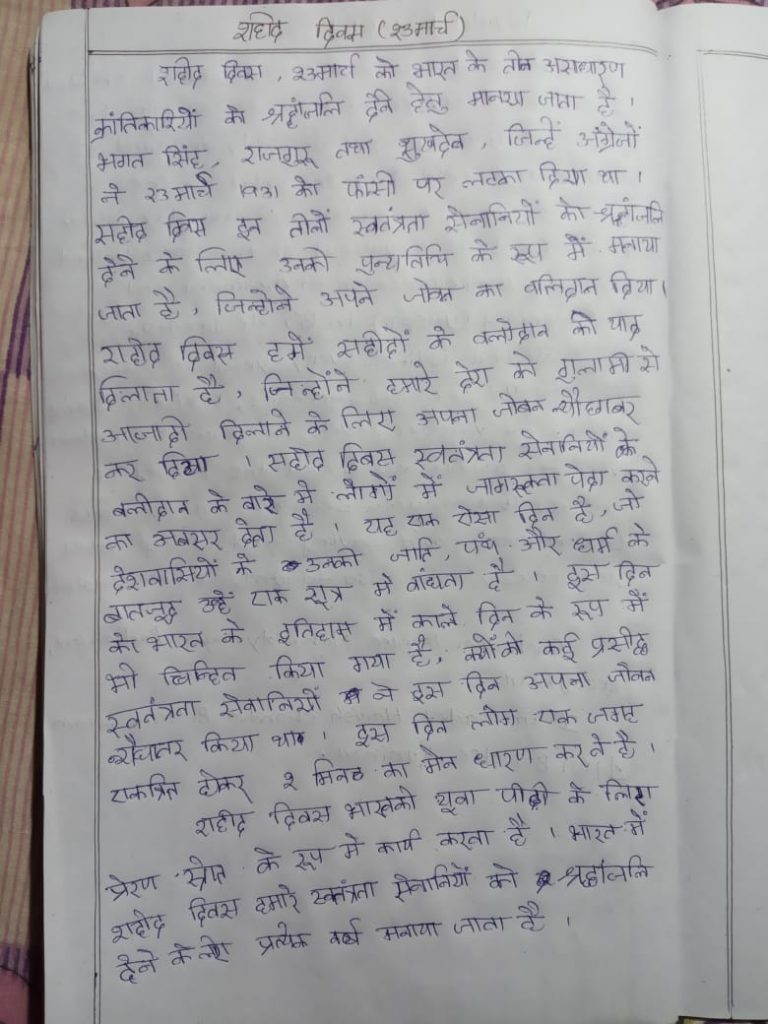 शहीद दिवस (23मार्च)
शहीद दिवस, 23मार्च को भारत के तीन असाधारण
क्रांतिकारियों को श्रद्धांजलि देने हेतु मानया जाता है।
भगत सिंह, राजगुरू तथा सुखदेव, जिन्हें अंग्रेजों
ने 23मार्च 1931 को फांसी पर लटका दिया था।
सहीद दिवस इन तीनों स्वतंत्रता सेनानियों को श्रद्धांजलि
देने के लिए उनकी पुन्यतिथि के रूप में मनाया
जाता है, जिन्होंने अपने जीवन का बलिदान दिया।
शहीद दिवस हमें सहीदों के बलीदान की याद
दिलाता है, जिन्होंने हमारे देश को गुलामी से
आजादी दिलाने के लिए अपना जीवन न्यौछावर
कर दिया। सहीद दिवस स्वतंत्रता सेनानियों के
बलीदान के बारे में लोगों में जागरूकता पैदा करने
का अवसर देता है। यह एक ऐसा दिन है, जो
देशवासियों के उनकी जाति, पंथ और धर्म के
बावजूद उन्हें एक सूत्र में बांधता है। इस दिन
को भारत के इतिहास में काले दिन के रूप में
भी चिन्हित किया गया है, क्योंकी कई प्रसीद्ध
स्वतंत्रता सेनानियों ने इस दिन अपना जीवन
न्यौछावर किया था। इस दिन लोग एक जगह
एकत्रित होकर 2 मिनट का मौन धारण करते है।
शहीद दिवस भारतकी युवा पीढ़ी के लिए
प्रेरण स्रोत के रूप में कार्य करता है। भारत में
शहीद दिवस हमारे स्वतंत्रता सेनानियों को श्रद्धांजलि
देने के लिए प्रत्येक वर्ष मनाया जाता है।